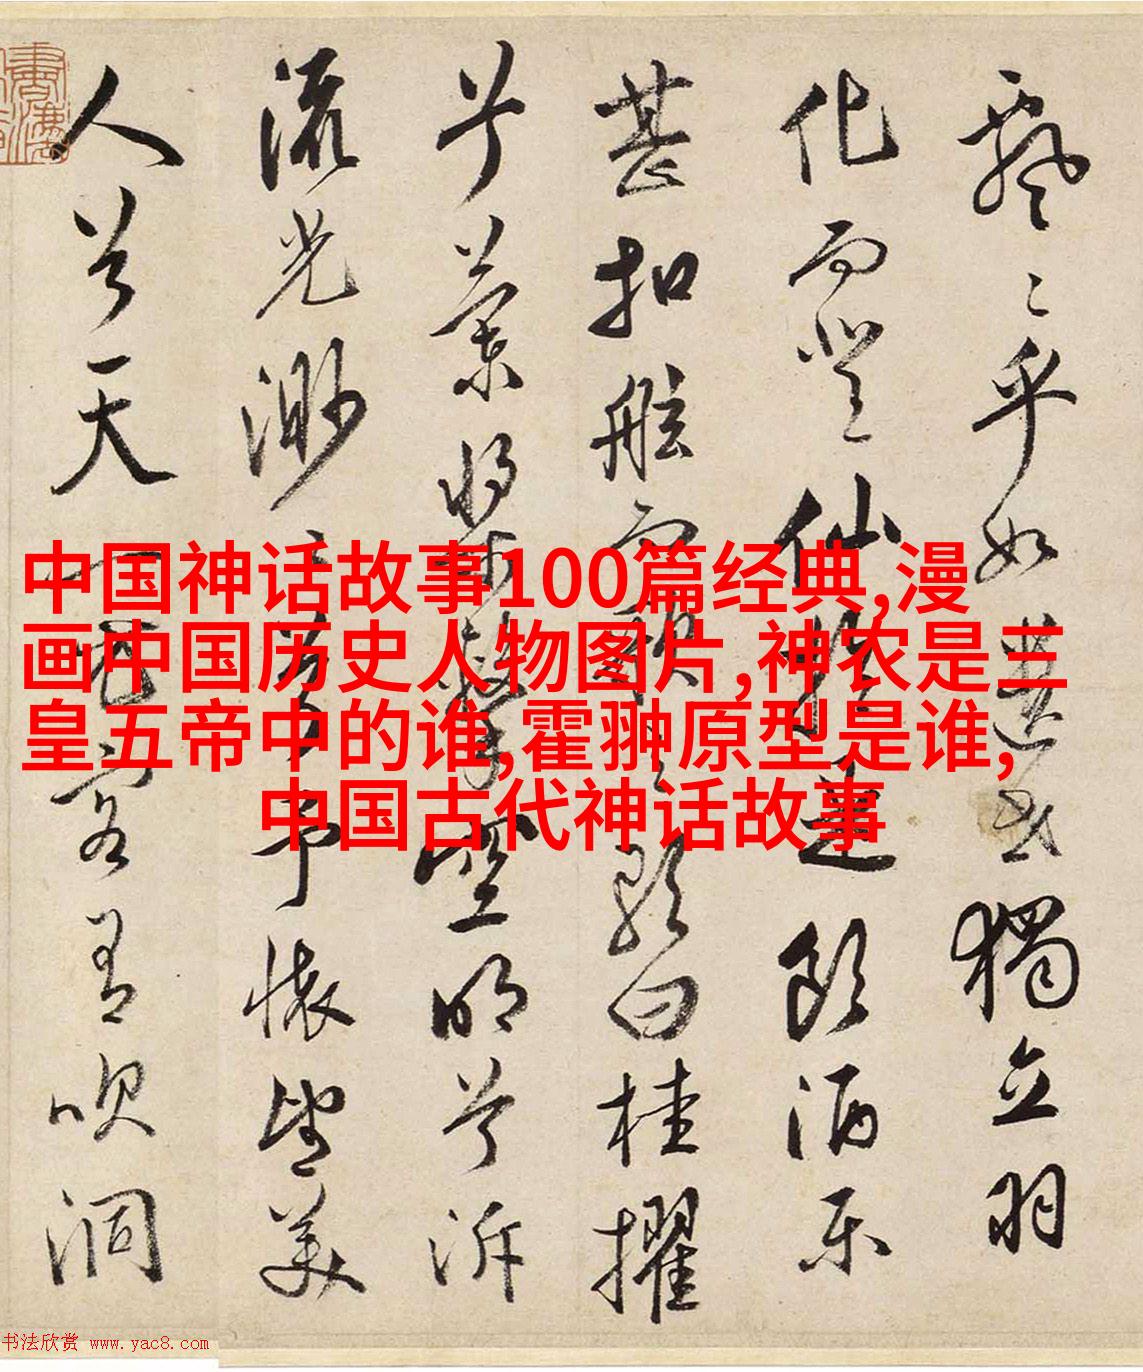 飄〻乎如遺世獨立羽
化而登仙於是飲酒樂
甚扣舷而歌之歌曰桂櫂
兮蘭槳擊空明兮泝
流光渺〻兮予懷望美
人兮天一方客有吹洞
中国神话故事100篇经典,漫
画中国历史人物图片,神农是三
皇五帝中的谁,霍翀原型是谁,
中国古代神话故事
书法欣赏 www.yac8.com